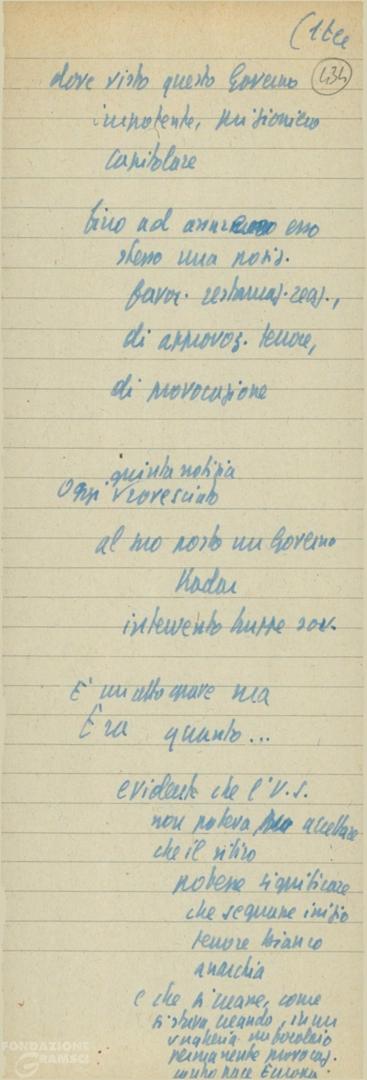 (1 tce
434
dove visto questo Governo
impotente, prigioniero
capitolare
fino ad assumere esso
stesso una posiz.
favor. restauraz. reaz.,
di approvaz. terrore,
di provocazione
giunta notizia
Oggi rovesciato
al suo posto un Governo
Kadar
intervento truppe sov.
E' un atto grave ma
Era quanto...
evidente che l'U.S.
non poteva accettare
che il ritiro
potesse significare
che segnare inizio
terrore bianco
anarchia
e che si creare, come
si stava creando, in un
Ungheria un focolaio
permanente provocaz.
contro pace Europa.
FONDAZIONE
GRAMSCI